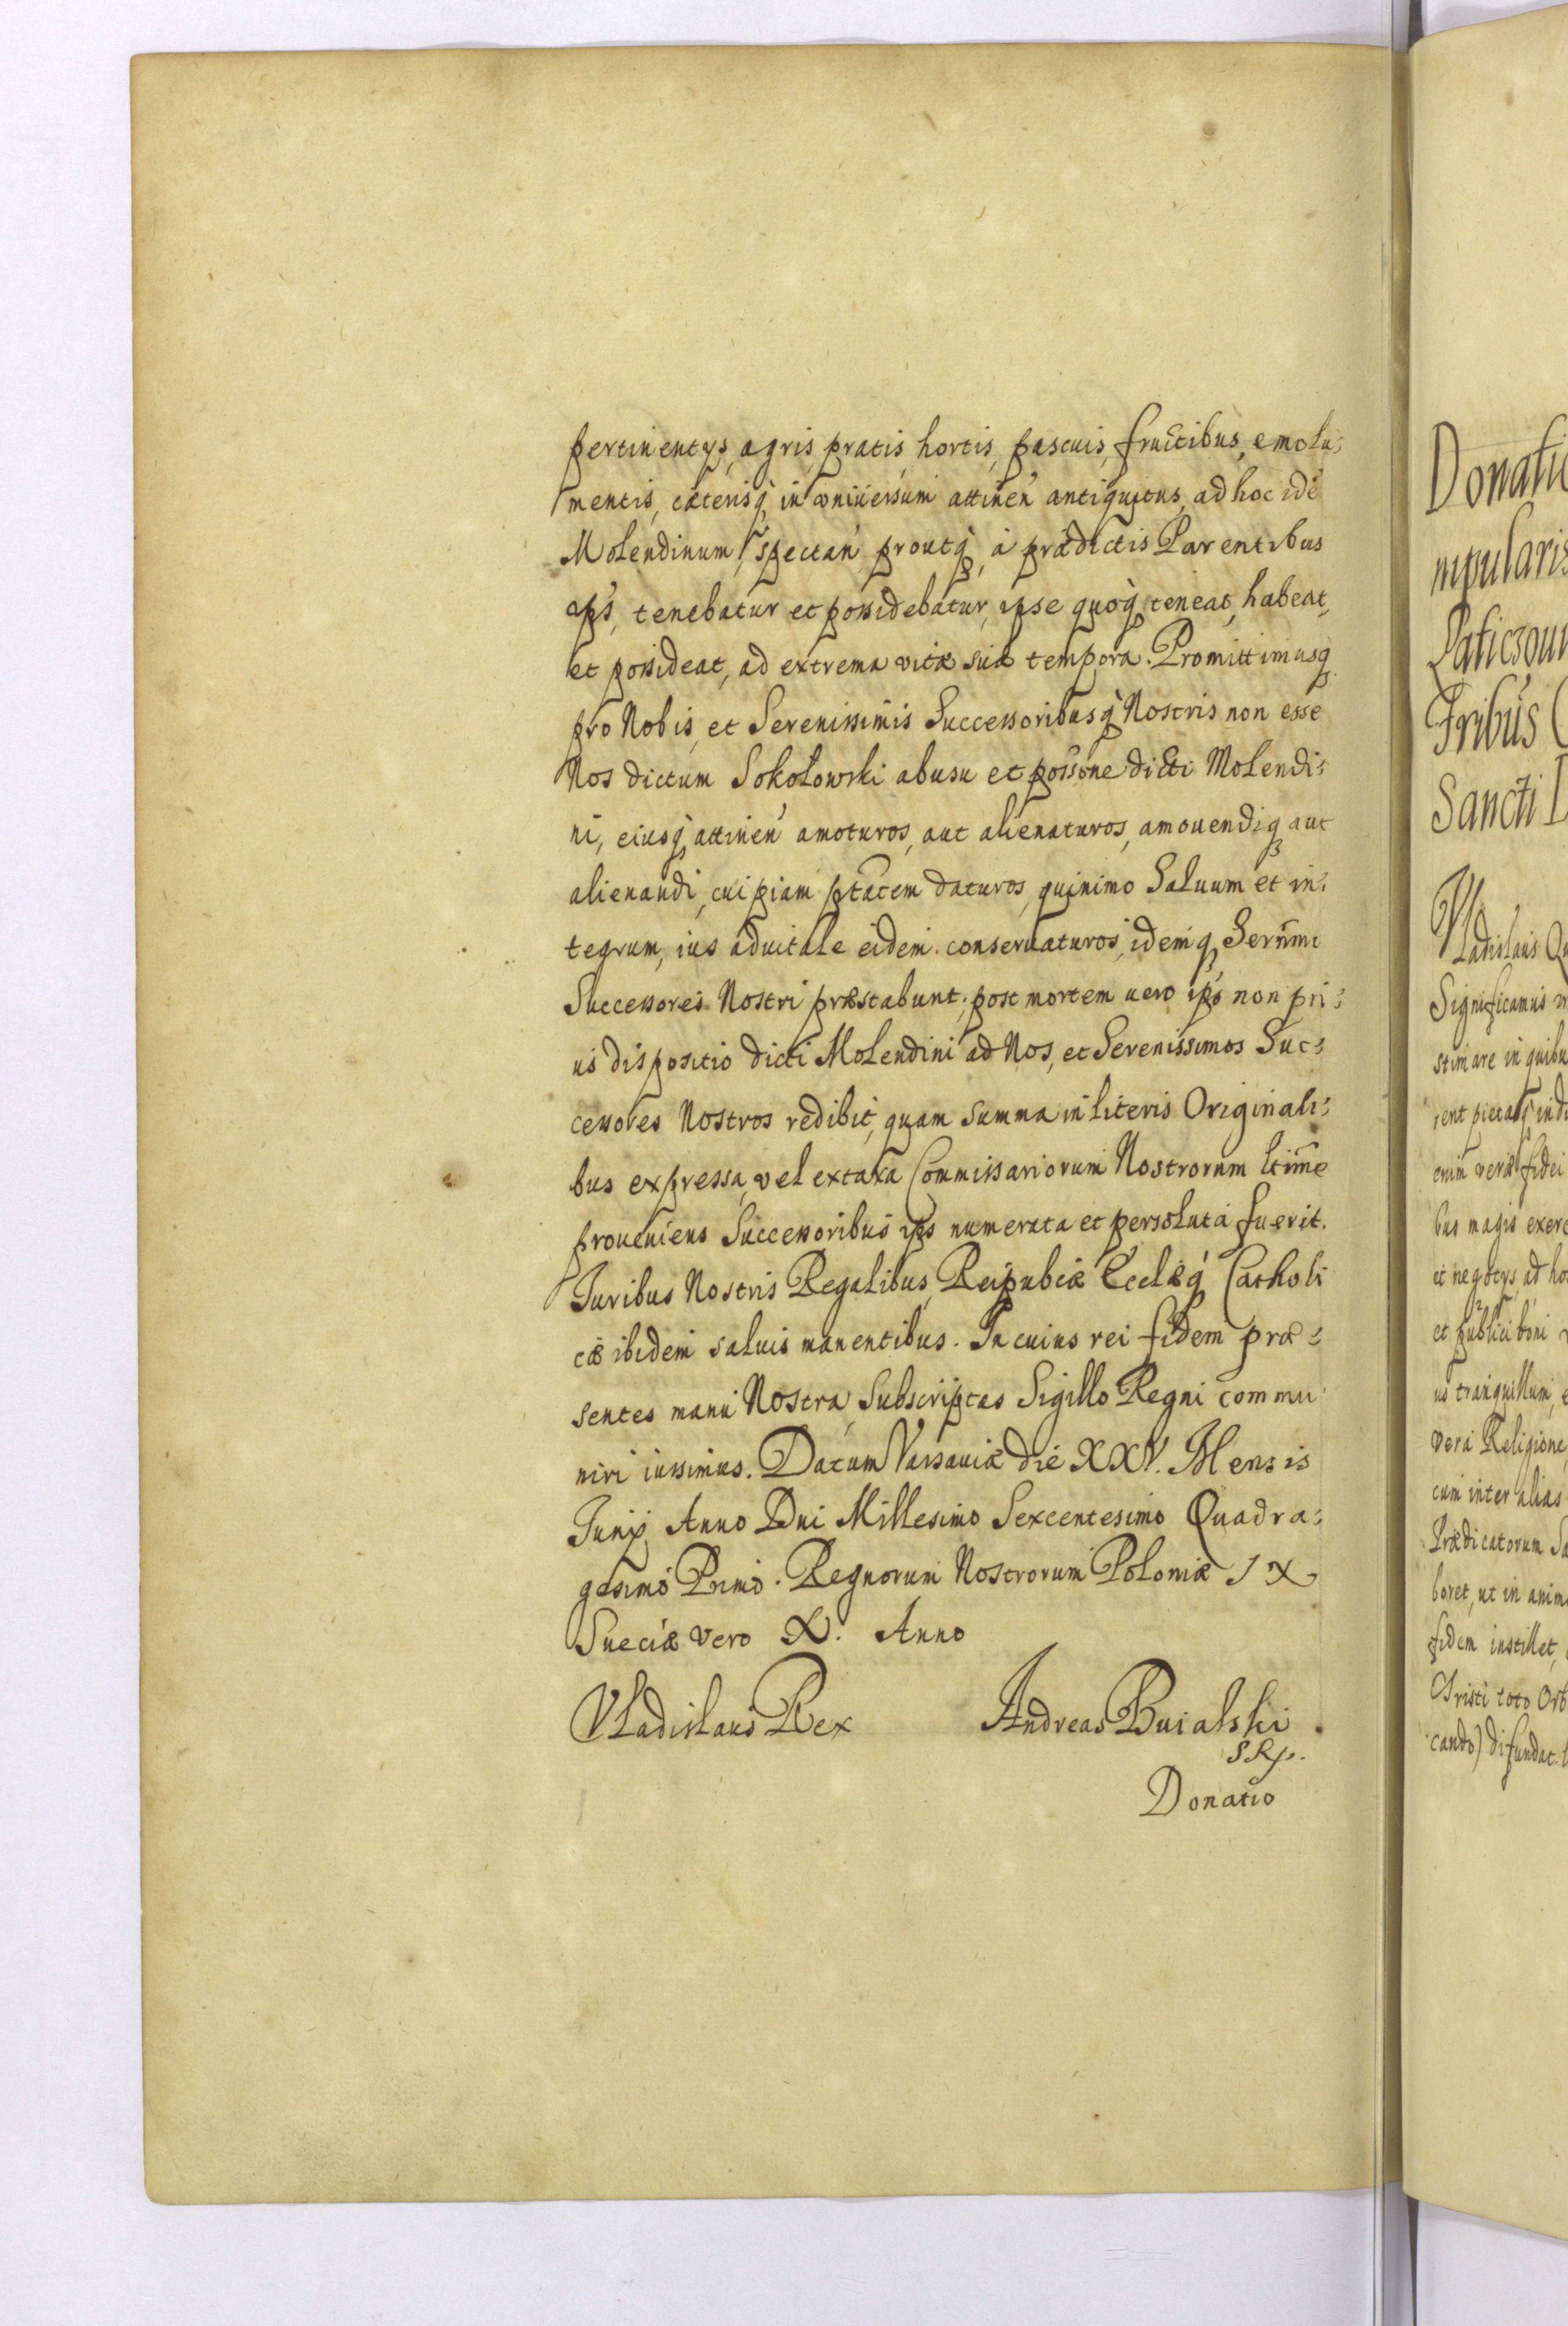 pertinentÿs, agris, pratis, hortis, pascuis, fructibus, emolu:
mentis, cæterisq, in vniuersum attinen antiquitus, ad hoc idē
Molendinum, spectan proutq, à prædictis Parentibus
ips, tenebatur et possidebatur, ipse quoq teneat, habeat,
et possideat, ad extrema vitæ suæ tempora. Promittimusq
pro Nobis, et Serenissimis Successoribusq Nostris non esse
Nos dictum Sokołowski ab usu et possōne dicti Molendi:
ni, eiusq attinen amoturos, aut alienaturos, amouendiq aut
alienandi, cuipiam ptātem daturos, quinimo Saluum et in:
tegrum, ius aduitale eidem conseruaturos, idemq Serñmi
Successores Nostri præstabunt; post mortem uero ips non pri:
us dispositio dicti Molendini ad Nos, et Serenissimos Suc:
cessores Nostros redibit, quam summa in literis Originali:
bus expressa, vel ex taxa Commissariorum Nostrorum ltime
proueniens Successoribus ips numerata et persoluta fuerit.
Juribus Nostris Regalibus, Reipubcæ Ecclæq Catholi
cæ ibidem saluis manentibus. In cuius rei fidem præ:
sentes manu Nostra, Subscriptas Sigillo Regni commu
niri iussimus. Datum Varsauiæ die XXV. Mensis
Junÿ Anno Dni Millesimo Sexcentesimo Quadra:
gesimo Primo. Regnorum Nostrorum Poloniæ IX
Sueciæ vero X. Anno
Vladislaus Rex Andreas Buialski
SRp.
Donatio
Donatio
Fribus
Sancti
Vladislaus
Significamus
enim veræ fidei
bus magis exerc
et negotÿs, ad ho
et publici boni
us tranquillum, e
vera Religione
cum inter alias
Prædicatorum Sa
boret, ut in anim
fidem instillet,
Christi toto Orb
cando) difundat.